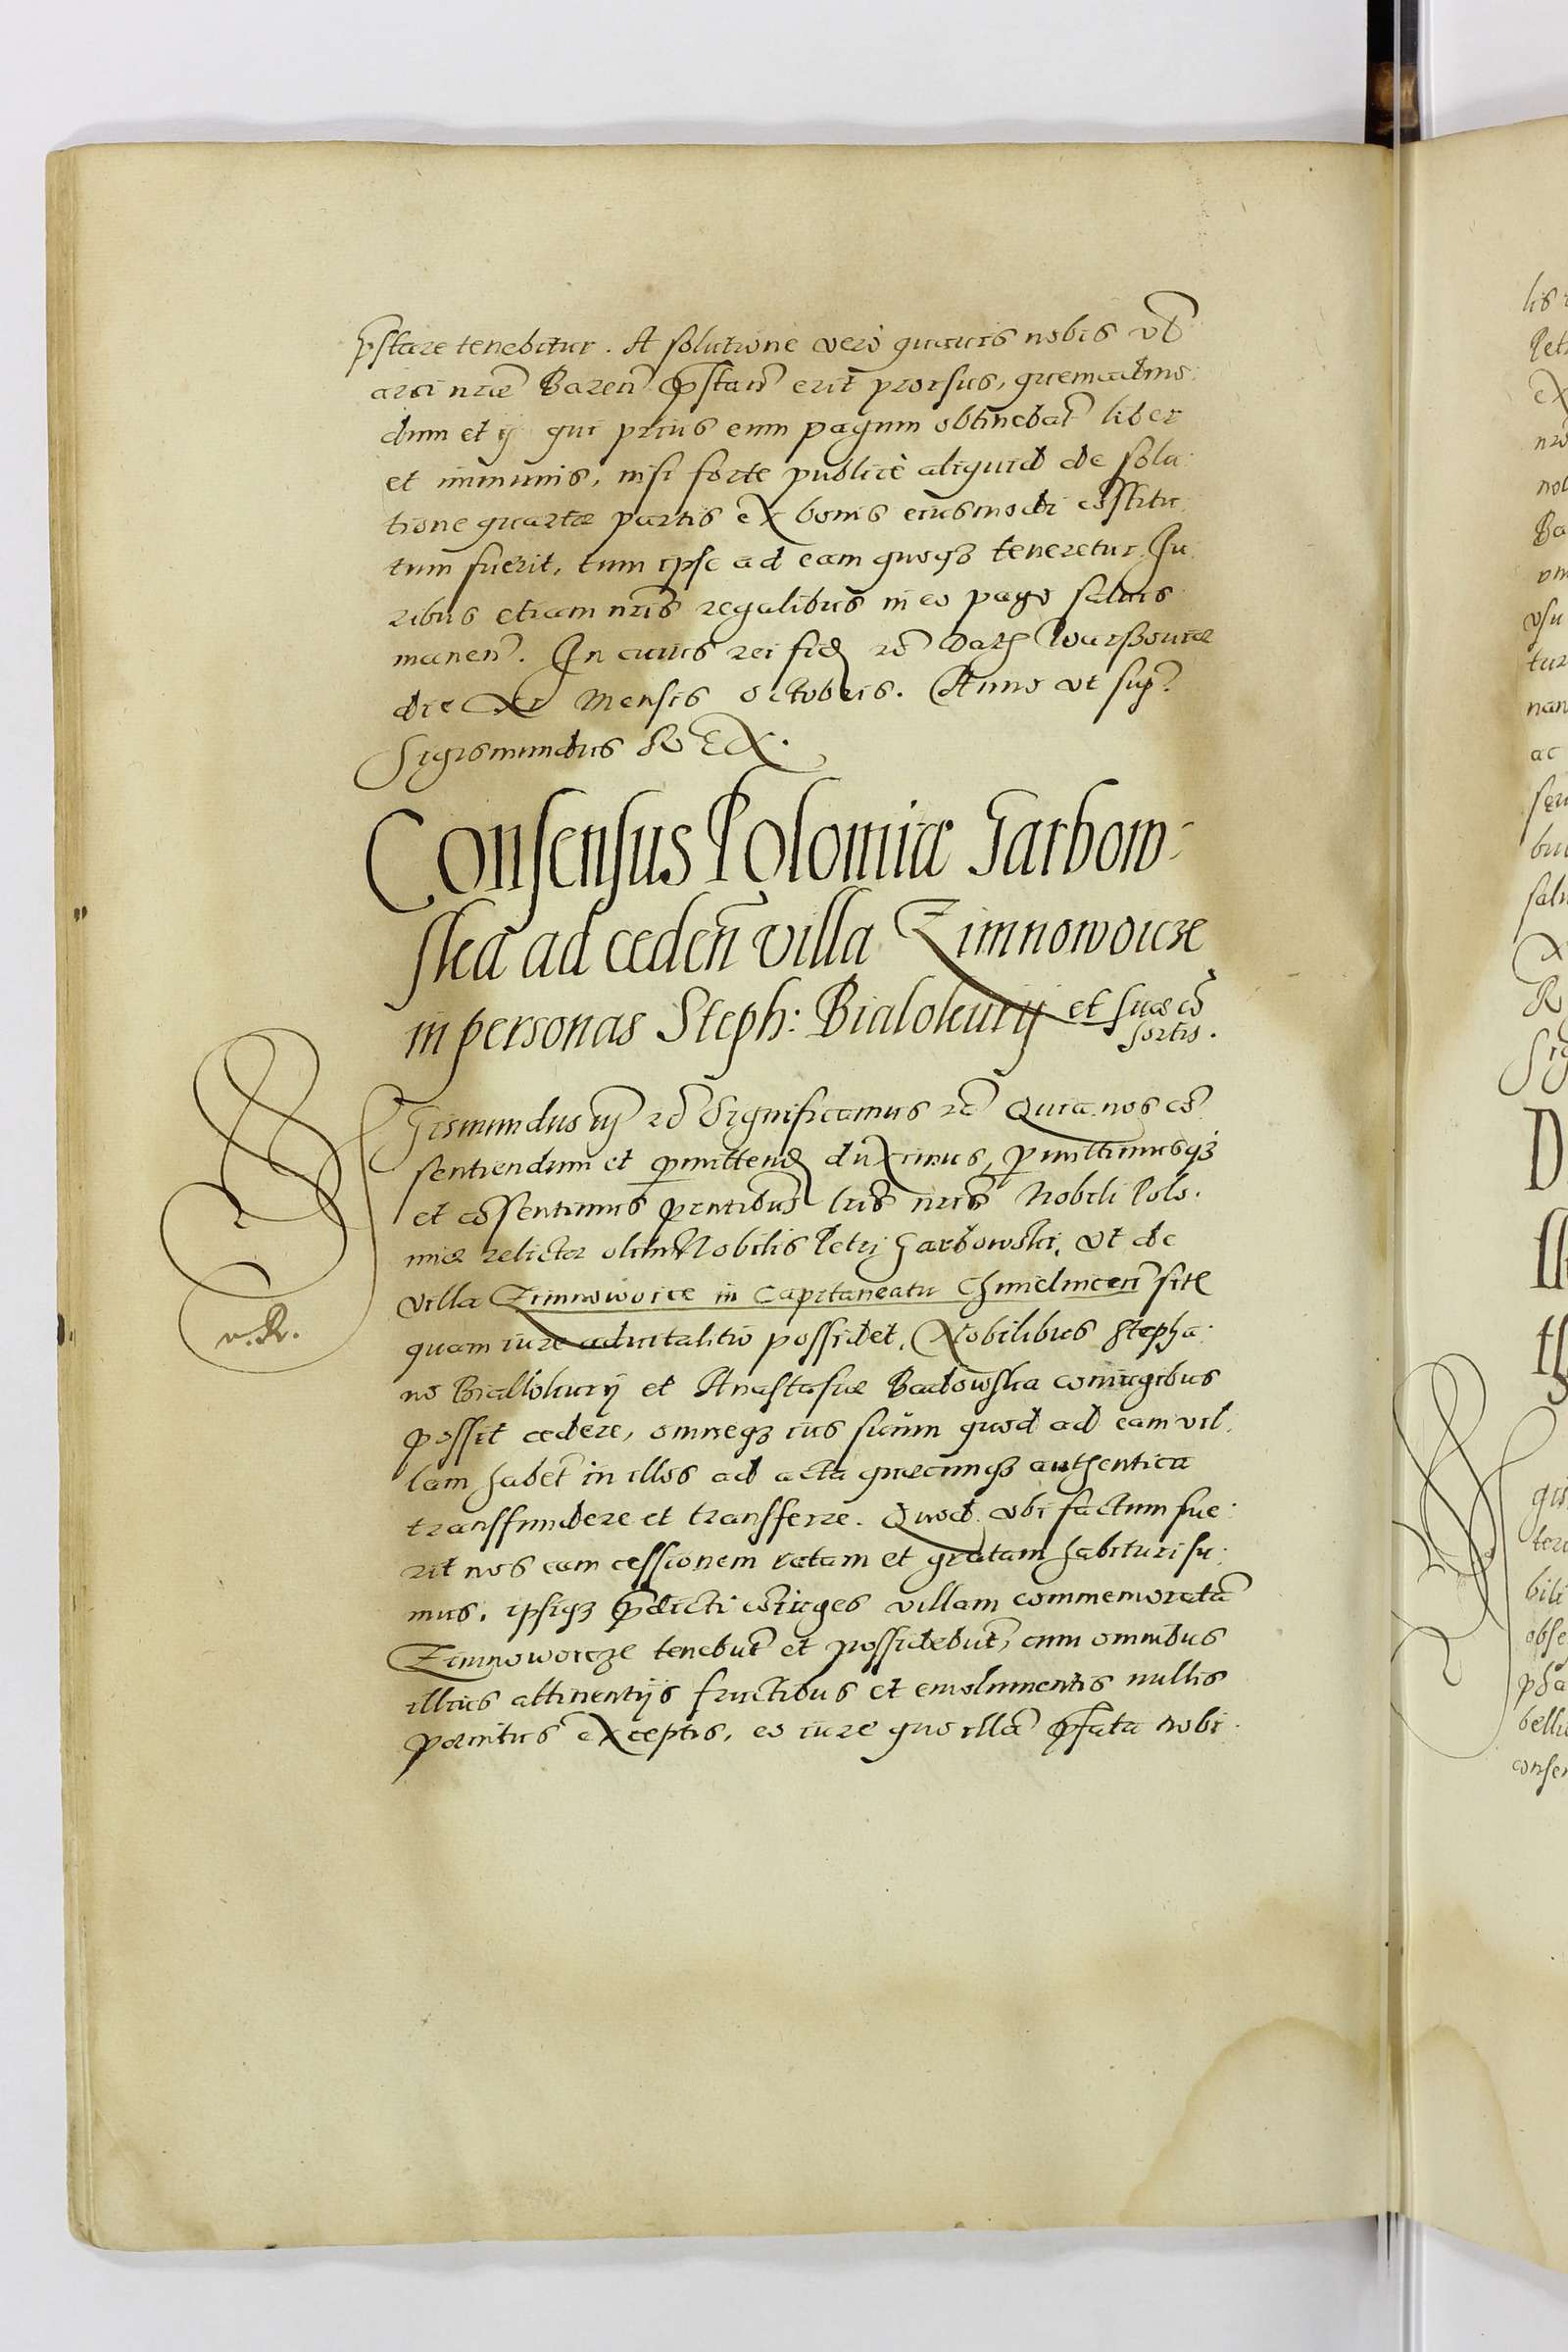 p̃stare tenebitur. A solutione verò quavis nobis vĕ
arci nr̃ae Bareñ p̃standa erit prorsus, quemadmo:
dum et ij qui prius eum pagum obtinebãt liber
et immunis, nisi forte publicè aliquid de solu:
tione quartae partis ex bonis eiusmodi cõstitu:
tum fuerit, tum ipse ad eam quoq3 teneretur. Iu:
ribus etiam nr̃is regalibus in eo pago salvis
maneñ. In cuius rei fidẽ &c̃ Datũ Warssoviae
die XI Mensis Octobris. Anno ut sup̃.
Sigismundus REX.
Consensus Polomiae Garbow-
ska ad cedeñ villa Zimnowoicze
in personas Steph: Bialokurij et suae cõ
sortis.
Sigismundus iij &c̃ Significamus &c̃ Quia nos cõ
sentiendum et permittendũ duximus, permittimusq3
et cõsentimus p̃ntibus lr̃is nr̃is Nobili Polo:
miae relictae olim Nobilis Petri Garbowski, ut de
villa Zimnowoice in Capitaneatu Chmielniceñ sitã
quam iure advitalitio possidet, Nobilibus Stepha:
no Biallokurij et Anastasiae Badowska coniugibus
possit cedere, omneq3 ius suum quod ad eam vil:
lam habet in illos ad acta quaecunq3 authentica
transfundere et transferre. Quod ubi factum fue:
rit nos eam cessionem ratam et gratam habituri su:
mus, ipsiq3 p̃dicti cõiuges villam commemoratã
Zimnowoicze tenebũt et possidebũt, cum omnibus
illius attinentijs fructibus et emolumentis nullis
poenitus exceptis, eo iure quo illã p̃fata nobi:
v. R.